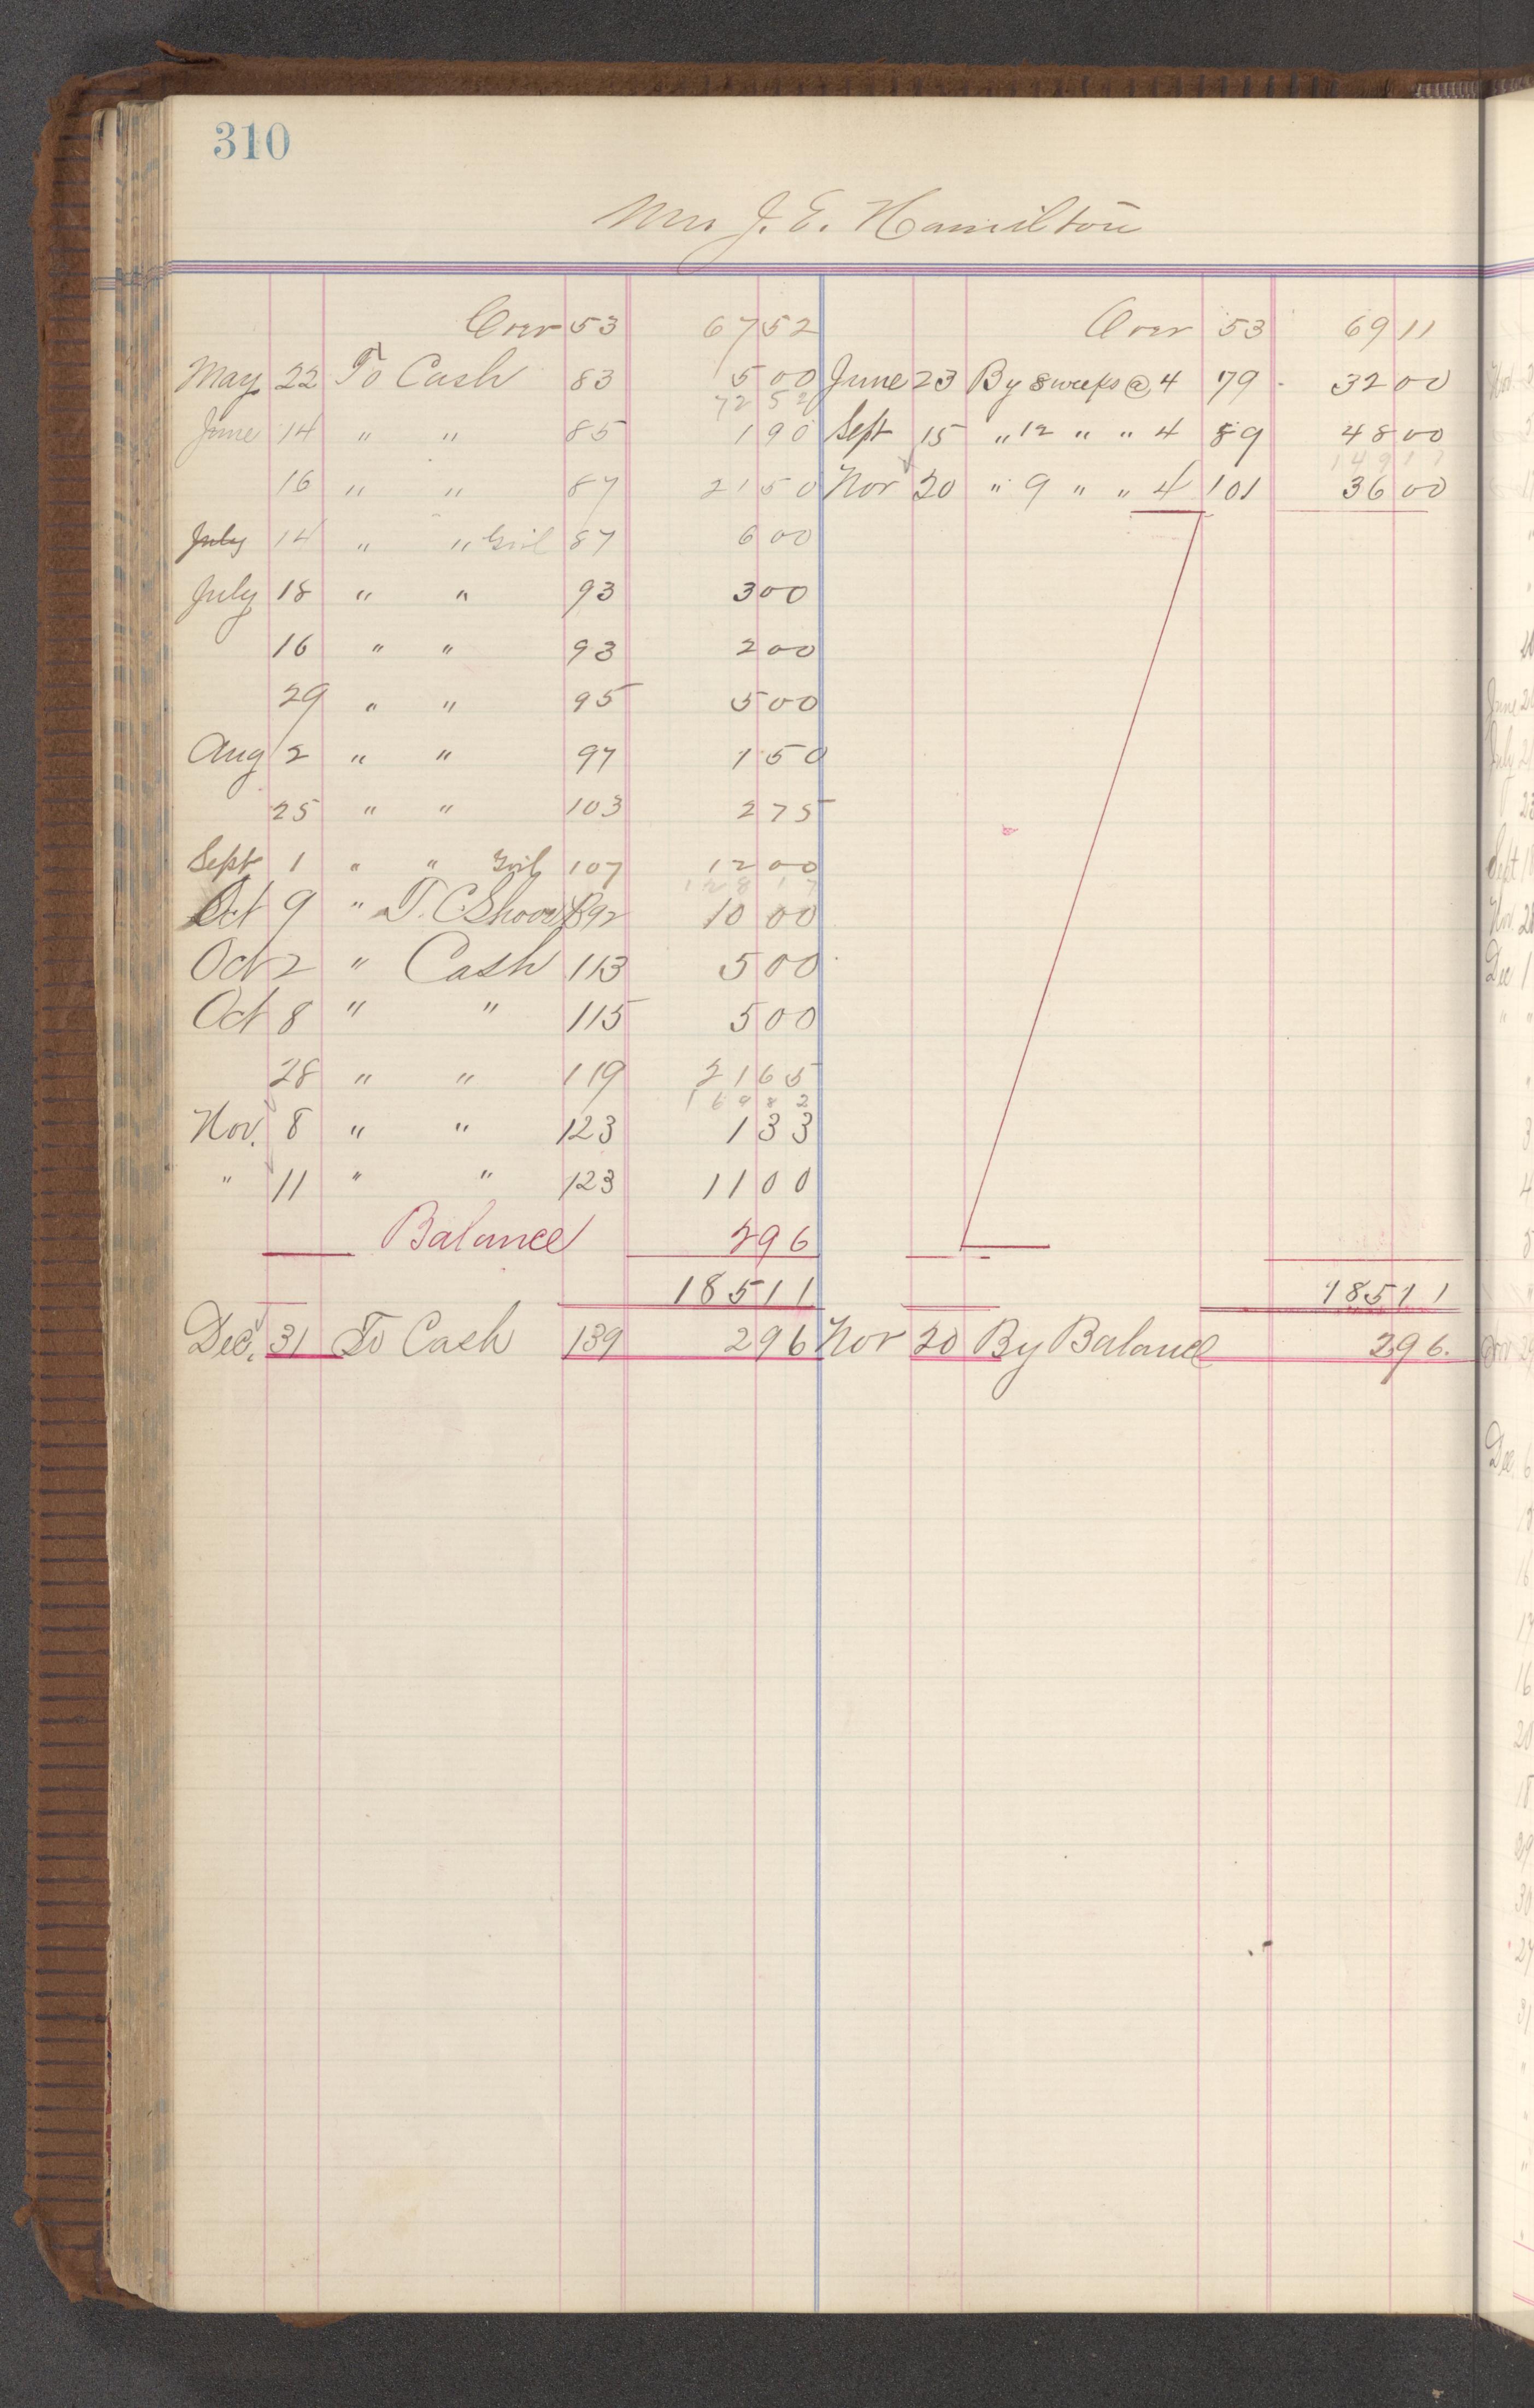 310
Mrs J. E. Hamilton
Over 53 67 52 Over 53 69 11
May 22 To Cash 83 5 00 June 23 By 8 weeks @ 4 79 32 00
72 52
June 14 " " 85 1 90 Sept 15 " 12 " " 4 89 48 00
149 11
16 " " 87 21 50 Nov 20 " 9 " " 4 101 36 00
July 14 " " Girl 87 6 00
July 18 " " 93 3 00
16 " " 93 2 00
29 " " 95 5 00
Aug 2 " " 97 1 50
25 " " 103 2 75
Sept 1 " " Girl 107 12 00
128 17
Oct 9 " T. C. B92 10 00
Oct 2 " Cash 113 5 00
Oct 8 " " 115 5 00
28 " " 119 21 65
169 82
Nov. 8 " " 123 1 33
" 11 " " 123 11 00
Balance 2 96
185 11 185 11
Dec. 31 To Cash 139 2 96 Nov 20 By Balance 2 96.